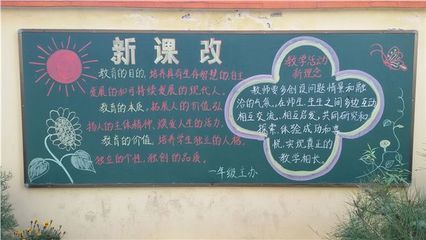 新课改
教育的目的,培养具有生存智慧的,自主
发展的和可持续发展的现代人。
教育的本质,拓展人的价值,弘
扬人的主体精神,激发人生的活力。
教育的价值,培养学生独立的人格,
独立的个性,独创的品质。
一年级主办
教学活动
新理念
教师要多创设问题情景和融
洽的气氛,在师生、生生之间多边互动
相互交流,相互启发,共同研究和
探索,体验成功和喜
悦,实现真正的
教学相长。